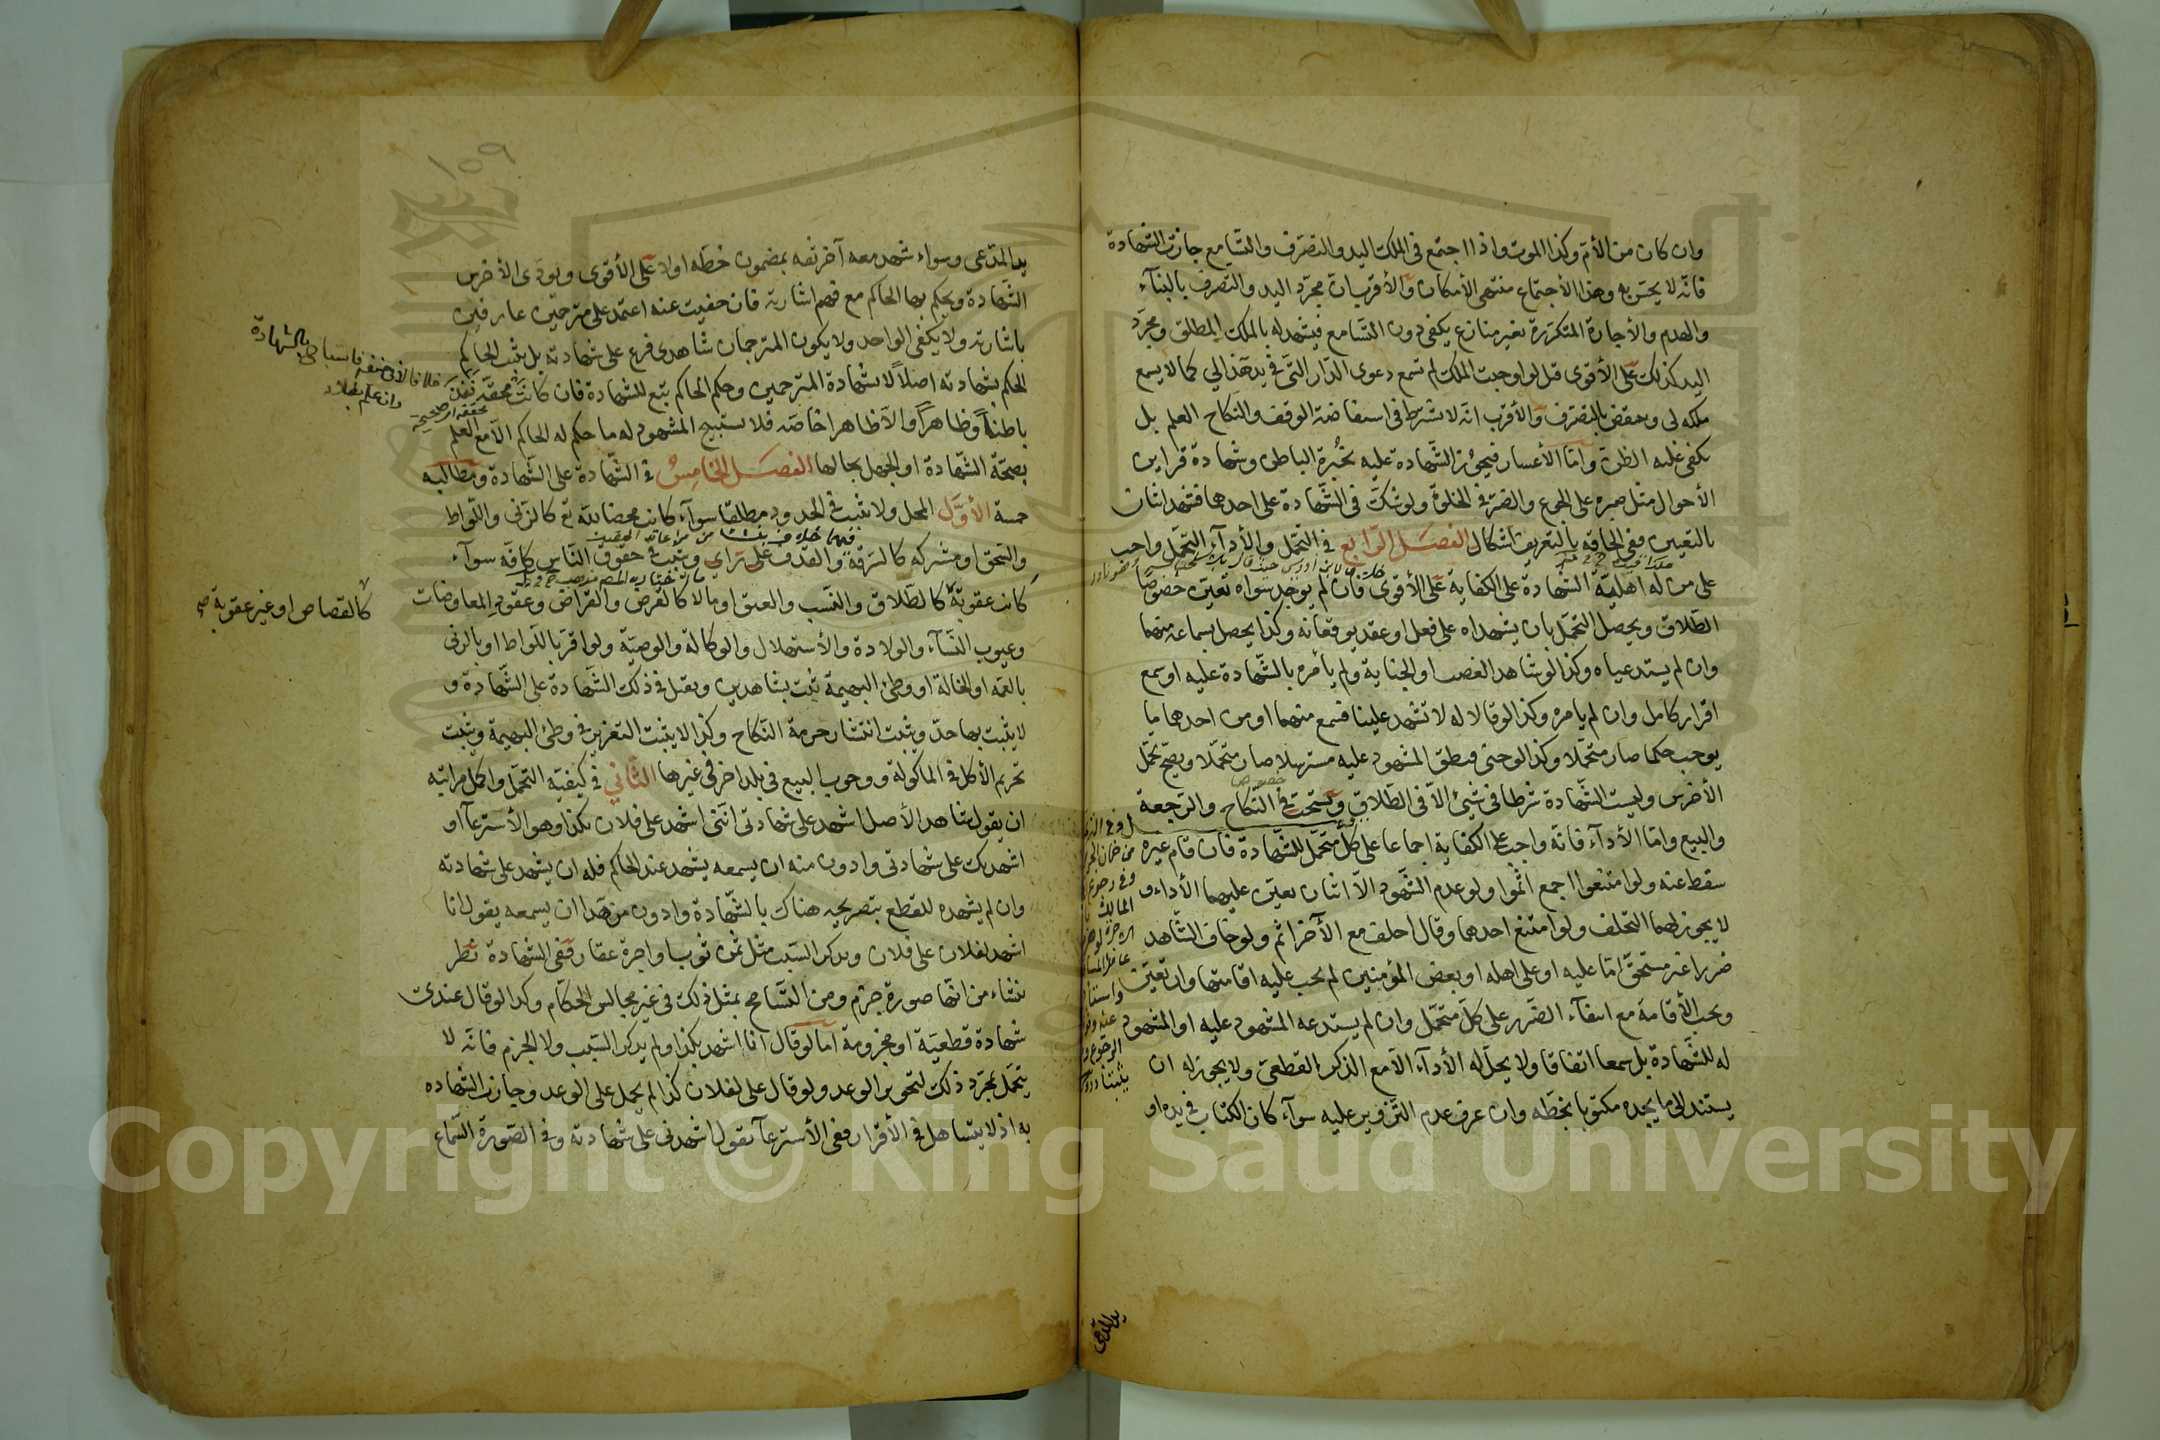 وان كان من الأم وكذا الموت واذا اجتمع في الملك اليد والتصرف والتسامع جازت الشهادة
فانه لا يحس به وهذا الأجتماع منتهى الأمكان والأقرب ان مجرد اليد والتصرف بالبناء
والهدم والأجارة المتكررة بغير منازع يكفي دون التسامع فيشهد له بالملك المطلق ومجرد
اليد كذلك على الأقوى قيل لو اوجبت الملك لم تسمع دعوى الدار التي في يد هذا لي كما لا يسمع
ملكه لي وينقض بالتصرف والأقرب انه لا يشترط في استفاضة الوقف والنكاح العلم بل
يكفي غلبة الظن واما الأعسار فيجوز الشهادة عليه بخبرة الباطن وشهادة قراين
الأحوال مثل صبره على الجوع والضر في الخلوة ولو شكك في الشهادة على احدهما فشهد اثنان
بالتعيين ففي الحاقه بالتعريف اشكال الفصل الرابع في التحمل والأداء التحمل واجب
على من له اهلية الشهادة على الكفاية على الأقوى فان لم يوجد سواه تعين خصوصا
الطلاق ويحصل التحمل بان يشهداه على فعل او عقد يوقعانه وكذا يحصل بسماعه منهما
وان لم يستدعياه وكذا لو شاهد الغصب او الجناية ولم يأمره بالشهادة عليه او سمع
اقرار كامل وان لم يامره وكذا لو قالا له لا تشهد علينا فسمع منهما او من احدهما ما
يوجب حكما صار متحملا وكذا لو خبى فنطق المشهود عليه مسترسلا صار متحملا ويصح تحمل
الأخرس وليست الشهادة شرطا في شيئ الا في الطلاق ويستحب في النكاح والرجعة
والبيع واما الأداء فانه واجب على الكفاية اجماعا على كل متحمل للشهادة فان قام غيره
سقط عنه ولو امتنعوا اجمع اثموا ولو عدم الشهود الا اثنان تعين عليهما الأداء و
لا يجوز لهما التخلف ولو امتنع احدهما وقال احلف مع الآخر اثم ولو خاف الشاهد
ضررا غير مستحق اما عليه او على اهله او بعض المؤمنين لم يجب عليه اقامتها وان تعين
ويجب الأقامة مع انتفاء الضرر على كل متحمل وان لم يستدعه المشهود عليه او المشهود
له للشهادة بل سمعا اتفاقا ولا يحل له الأداء الا مع الذكر القطعي ولا يجوز له ان
يستند الى ما يجده مكتوبا بخطه وان عرف عدم التزوير عليه سواء كان الكتاب في يده او
يد المدعى
١٥٩
يد المدعي وسواء شهد معه آخر ثقة بمضمون خطه او لا على الأقوى ويودى الأخرس
الشهادة ويحكم بها الحاكم مع فهم اشارته فان خفيت عنه اعتمد على مترجمين عارفين
باشارته ولا يكفي الواحد ولا يكون المترجمان شاهدى فرع على شهادته بل يثبت الحاكم
الحكم بشهادته اصلا لا بشهادة المترجمين وحكم الحاكم تبع للشهادة فان كانت محقة نفذ
باطنا وظاهرا والا ظاهرا خاصه فلا يستبيح المشهود له ما حكم له الحاكم الا مع العلم
بصحة الشهادة او الجهل بحالها الفصل الخامس في الشهادة على الشهادة ومطالبه
خمسة الأول المحل ولا يثبت في الحدود مطلقا سواء كانت محضا لله تع كالزنى واللواط
والسحق او مشتركة كالسرقة والقذف على راى ويثبت في حقوق الناس كافة سواء
كانت عقوبة كالطلاق والنسب والعتق او مالا كالقرض والقراض وعقود المعاوضات
كالقصاص او غير عقوبة صح
وعيوب النساء والولادة والأستهلال والوكالة والوصية ولو اقر باللواط او بالزنى
بالعمة او الخالة او وطئ البهيمة ثبت بشاهدين ويقبل في ذلك الشهادة على الشهادة و
لا يثبت بها حد ويثبت انتشار حرمة النكاح وكذا لا يثبت التعزير في وطئ البهيمة ويثبت
تحريم الأكل في المأكولة ووجوب البيع في بلد اخر في غيرها الثاني في كيفية التحمل واكمل مراتبه
ان يقول شاهد الأصل اشهد على شهادتي انني اشهد على فلان بكذا وهو الأسترعاء او
اشهدتك على شهادتي وادون منه ان يسمعه يشهد عند الحاكم فله ان يشهد على شهادته
وان لم يشهده للقطع بتصريحه هناك بالشهادة وادون من هذا ان يسمعه يقول انا
اشهد لفلان على فلان ويذكر السبب مثل ثمن ثوب او اجرة عقار ففي الشهادة نظر
ينشاء من انها صورة جزم ومن التسامح بمثل ذلك في غير مجالس الحكام وكذا لو قال عندي
شهادة قطعية او مجزومة اما لو قال انا اشهد بكذا ولم يذكر السبب ولا الجزم فانه لا
يتحمل بمجرد ذلك لتجويز الوعد ولو قال على لفلان كذا لم يحمل على الوعد وجازت الشهاده
به اذ لا يتساهل في الأقرار ففي الأسترعاء يقول اشهدني على شهادته وفي الصورة السماع
Copyright © King Saud University